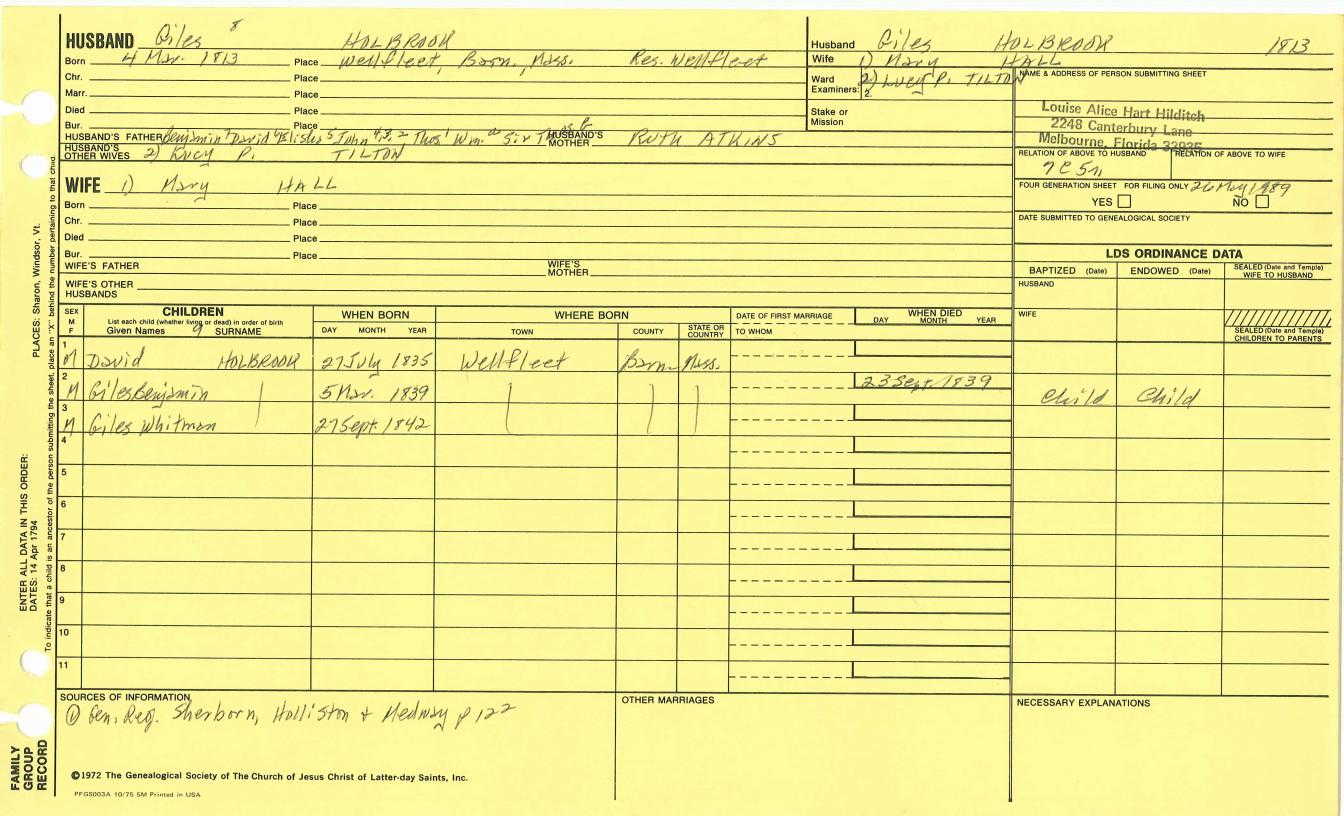 HUSBAND Giles 8 HOLBROOK
Born 4 Mar. 1813 Place Wellfleet, Barn., Mass. Res. Wellfleet
Chr. Place
Marr. Place
Died Place
Bur. Place
HUSBAND'S FATHER Benjamin 7 David 6 Elisha 5 John 4,3,2 Thos. 1 Wm. a Sir HUSBAND'S MOTHER Ruth ATKINS
HUSBAND'S OTHER WIVES 2) Lucy P. TILTON
Husband Giles HOLBROOK 1813
Wife 1) Mary HALL
Ward 2) Lucy P. TILTON
Examiners: 2.
Stake or Mission
NAME & ADDRESS OF PERSON SUBMITTING SHEET
Louise Alice Hart Hilditch
2248 Canterbury Lane
Melbourne, Florida 32935
RELATION OF ABOVE TO HUSBAND RELATION OF ABOVE TO WIFE
7C5r
FOUR GENERATION SHEET FOR FILING ONLY 26 May 1989
YES NO
DATE SUBMITTED TO GENEALOGICAL SOCIETY
WIFE 1) Mary HALL
Born Place
Chr. Place
Died Place
Bur. Place
WIFE'S FATHER WIFE'S MOTHER
WIFE'S OTHER HUSBANDS
LDS ORDINANCE DATA
BAPTIZED (Date) ENDOWED (Date) SEALED (Date and Temple) WIFE TO HUSBAND
HUSBAND
WIFE
SEALED (Date and Temple) CHILDREN TO PARENTS
SEX M F CHILDREN WHEN BORN WHERE BORN DATE OF FIRST MARRIAGE WHEN DIED
List each child (whether living or dead) in order of birth
Given Names 9 SURNAME DAY MONTH YEAR TOWN COUNTY STATE OR COUNTRY TO WHOM DAY MONTH YEAR
1 M David HOLBROOK 27 July 1835 Wellfleet Barn. Mass.
2 M Giles Benjamin 5 Mar. 1839 23 Sept. 1839 Child Child
3 M Giles Whitman 27 Sept. 1842
4
5
6
7
8
9
10
11
SOURCES OF INFORMATION
① Gen. Reg. Sherborn, Holliston & Medway p 122
OTHER MARRIAGES
NECESSARY EXPLANATIONS
©1972 The Genealogical Society of The Church of Jesus Christ of Latter-day Saints, Inc.
PFGS003A 10/75 5M Printed in USA
FAMILY GROUP RECORD
ENTER ALL DATA IN THIS ORDER:
DATES: 14 Apr 1794 PLACES: Sharon, Windsor, Vt.
To indicate that a child is an ancestor of the person submitting the sheet, place an "X" behind the number pertaining to that child.